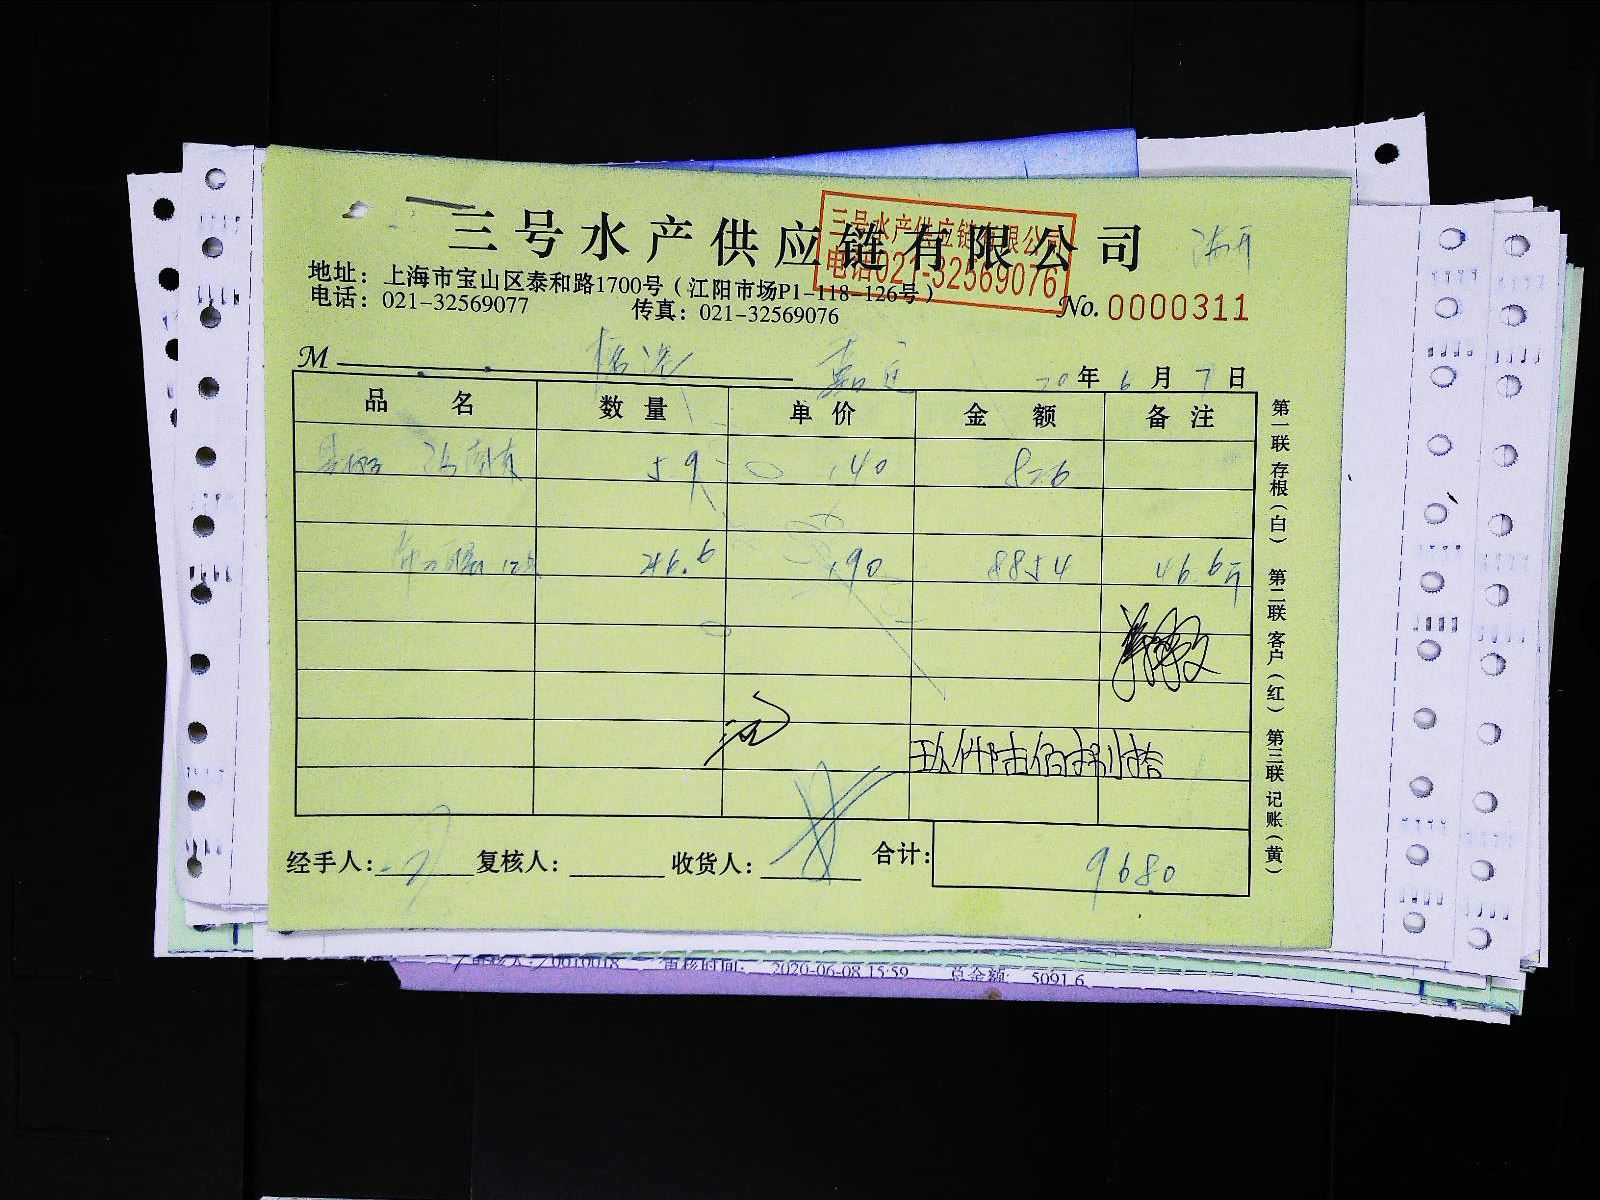 三号水产供应链有限公司
三号水产供应链有限公司
电话021-32569076
地址：上海市宝山区泰和路1700号（江阳市场P1-118-126号）
电话：021-32569077 传真：021-32569076
No. 0000311
M 嘉定 20年6月7日
品名 数量 单价 金额 备注
59 140 826
46.6 190 8854 46.6斤
玖仟陆佰捌拾
经手人： 复核人： 收货人： 合计： 9680
第一联 存根（白） 第二联 客户（红） 第三联 记账（黄）
审核人：70010018 审核时间： 2020-06-08 15:59 总金额： 5091.6